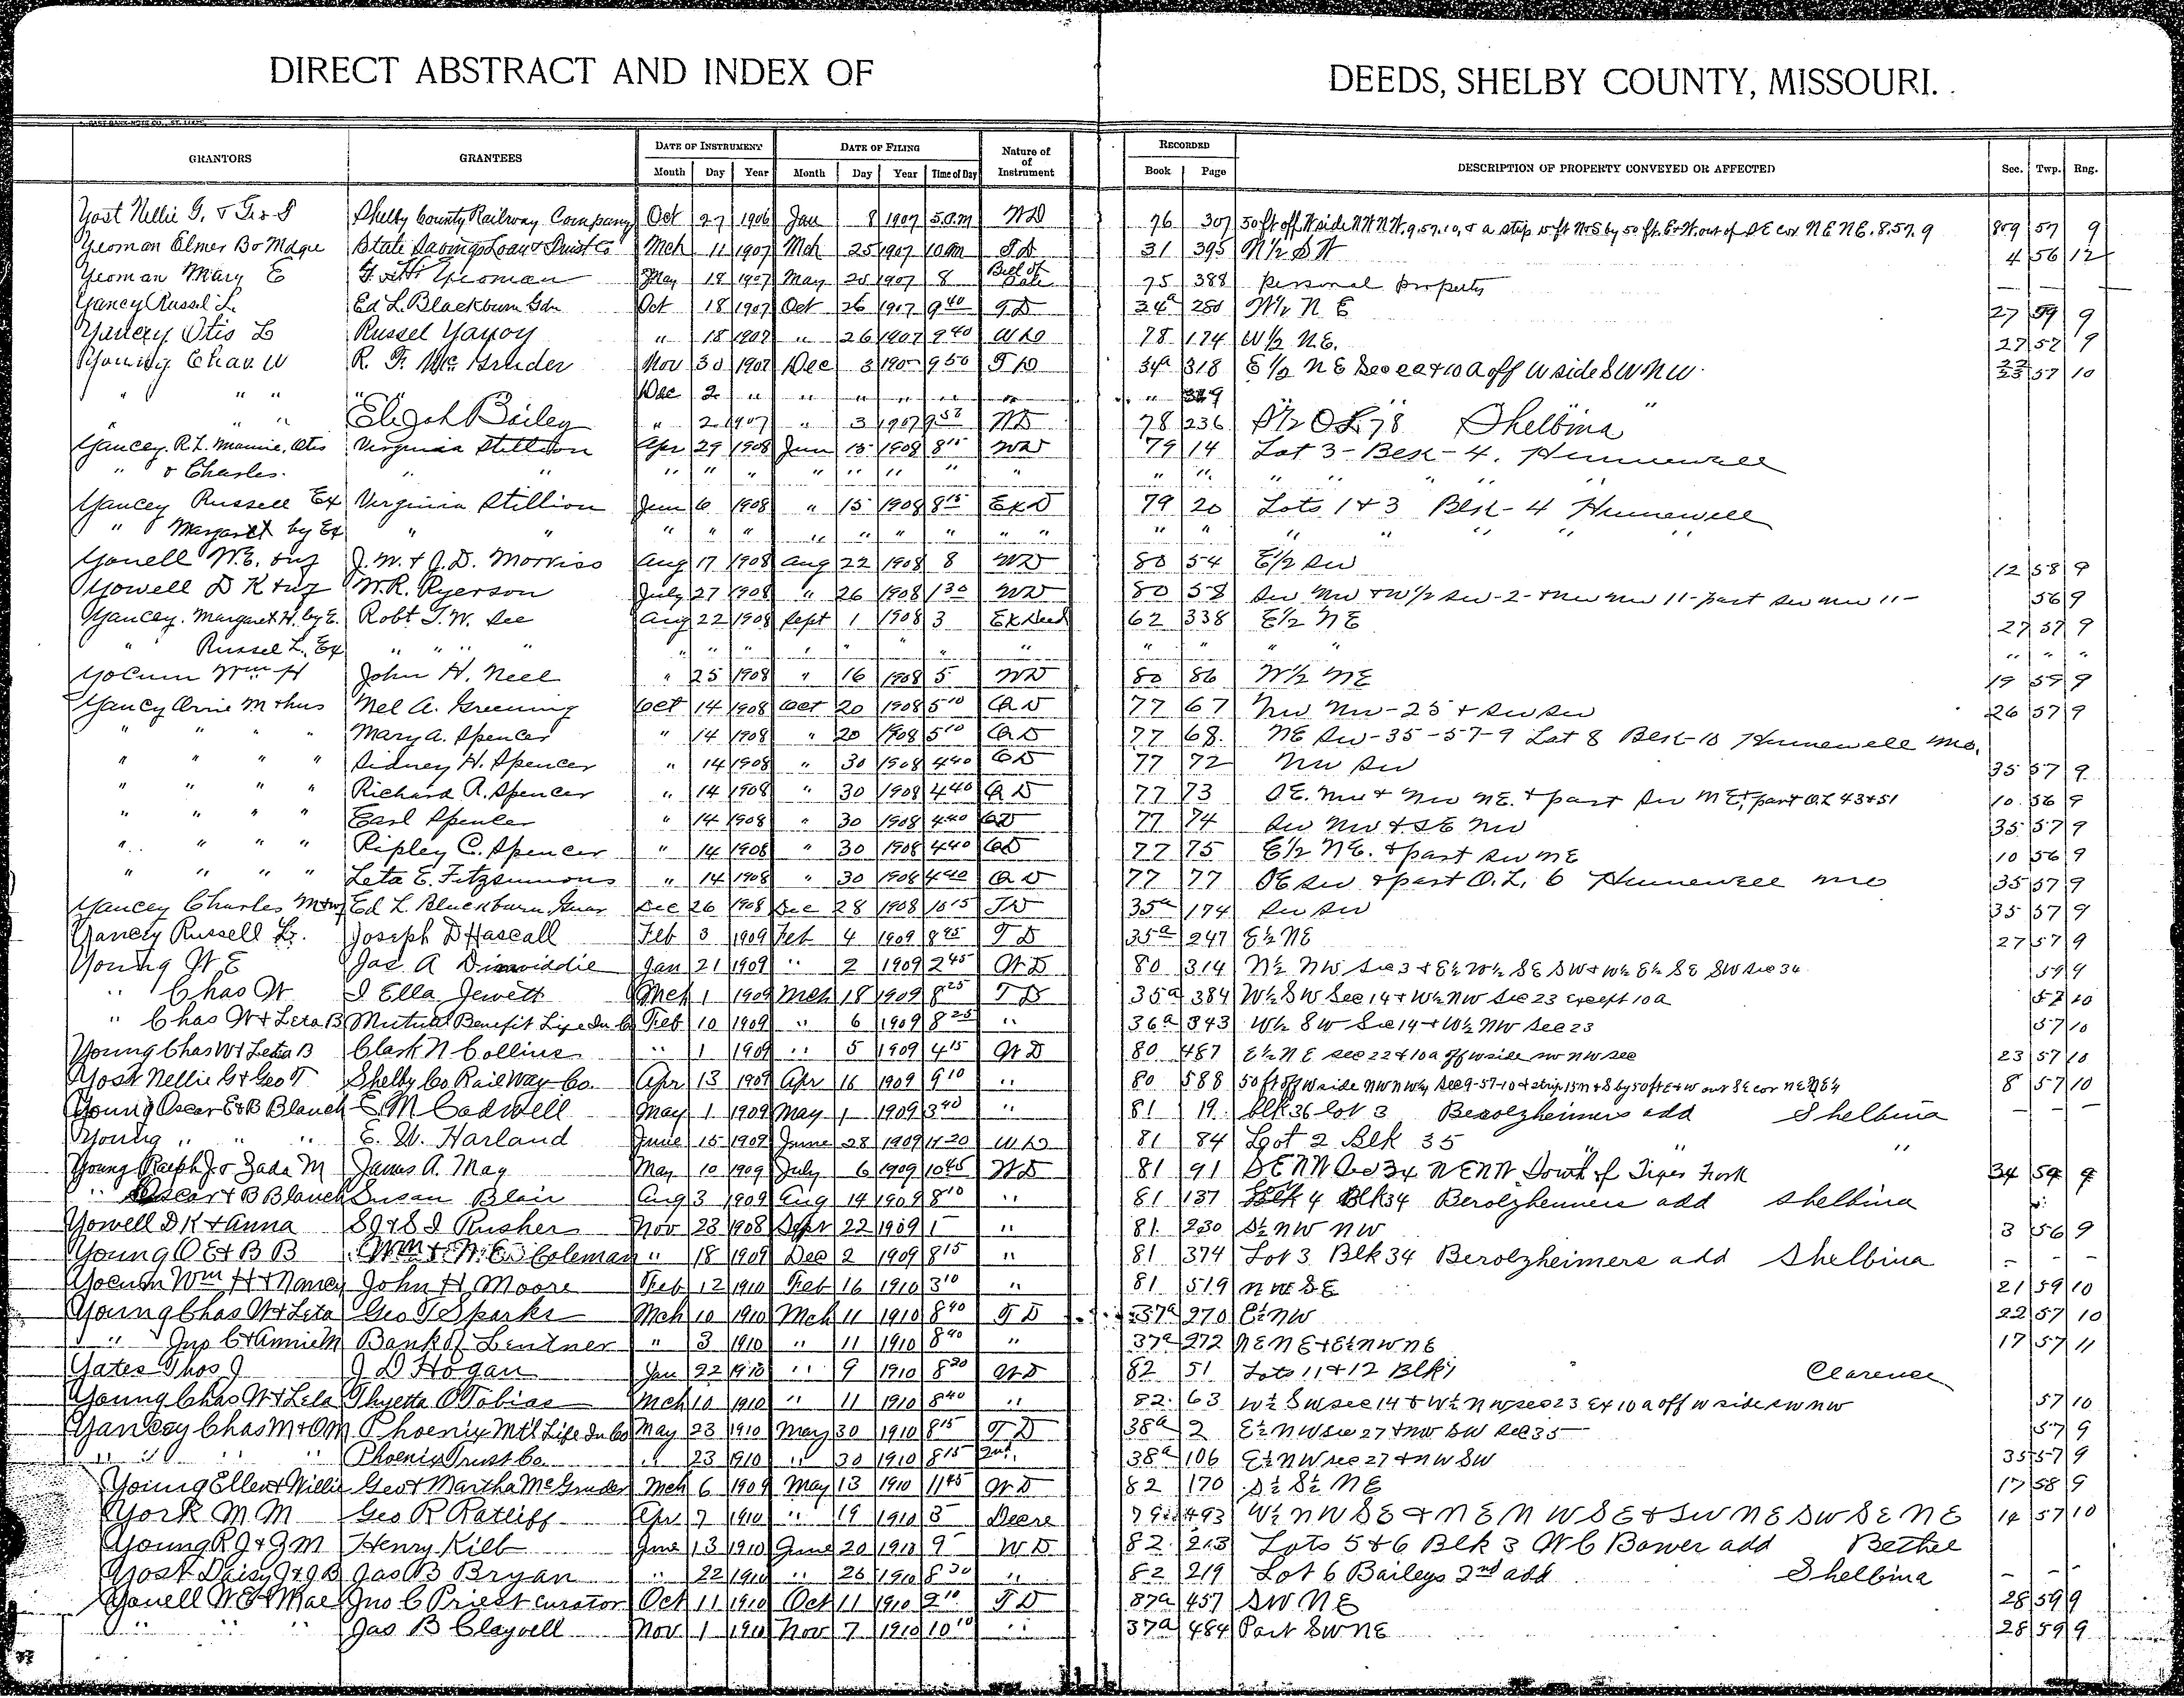 DIRECT ABSTRACT AND INDEX OF DEEDS, SHELBY COUNTY, MISSOURI.
GRANTORS GRANTEES DATE OF INSTRUMENT DATE OF FILING Nature of Instrument RECORDED DESCRIPTION OF PROPERTY CONVEYED OR AFFECTED Sec. Twp. Rng.
Month Day Year Month Day Year Time of Day Book Page
Yost Nellie G. & Geo T Shelby County Railway Company Oct 27 1906 Jan 8 1907 WD 76 307 50 ft off W side NW NW. 9.57.10, & a strip 15 ft N&S by 50 ft. E&W. out of SE cor NE NE. 8.57.9 8&9 57 9
Yeoman Elmer B & Madge State Savings Loan & Trust Co Mch 11 1907 Mch 25 1907 10 am TD 31 395 N½ SW 4 56 12
Yeoman Mary E Yeoman May 18 1907 May 25 1907 8 Bill of Sale 75 388 Personal Property —
Yancy Russel L. Ed L. Blackburn Gdn Oct 18 1907 Oct 26 1907 9 40 TD 34a 280 W½ N E 27 9
Yancey Otis L Russel Yancy " 18 1907 " 26 1907 9 40 WD 78 174 W½ N.E. 27 57 9
Young Chas. W R. F. McGruder Nov 30 1907 Dec 3 1907 9 50 TD 34a 318 E½ N E Sec 22 & 10 a off W side SW NW. 22 23 57 10
" " " " " Dec 2 " " " " " " " "
" " Elijah Bailey " 2 1907 " 3 1907 WD 78 236 O L 78 Shelbina
Yancey. R. L. Mamie, Otis Virginia Stillion Apr 29 1908 Jun 15 1908 8 15 WD 79 14 Lot 3 - Blk - 4. Hunnewell
" & Charles. " " " " " " " " " " " " " " " "
Yancey Russell Ex Virginia Stillion Jun 6 1908 " 15 1908 8 15 Ex D 79 20 Lots 1 & 3 Blk - 4 Hunnewell
" Margaret by Ex " " " " " " " " " " " " " " " "
Yowell W. E. & wf J. M. & J. D. Morriss Aug 17 1908 Aug 22 1908 8 WD 80 54 E½ SW 12 58 9
Yowell D K & wf W. R. Ryerson July 27 1908 " 26 1908 1 30 WD 80 58 SW NW & W½ SW - 2 - & NW NW 11 - part SW NW 11 - 56 9
Yancey. Margaret H. by E. Robt T. W. See Aug 22 1908 Sept 1 1908 3 Ex Deed 62 338 E½ NE 27 57 9
" Russel L. Ex " " " " " " " " " " " " " " " " " "
Yocum Wm H John H. Neel " 25 1908 " 16 1908 5 WD 80 86 W½ NE 19 59 9
Yancy Orvie M & hus Nel A. Greening Oct 14 1908 Oct 20 1908 5 10 Q D 77 67 NW NW - 25 & SW SW 26 57 9
" " " " Mary A. Spencer " 14 1908 " 20 1908 5 10 Q D 77 68. NE SW - 35 - 57 - 9 Lot 8 Blk - 10 Hunnewell Mo.
" " " " Sidney H. Spencer " 14 1908 " 30 1908 4 40 Q D 77 72 NW SW 35 57 9
" " " " Richard R. Spencer " 14 1908 " 30 1908 4 40 Q D 77 73 SE. NW & NW NE. & part SW NE, & part O.L 43 & 51 10 56 9
" " " " Earl Spencer " 14 1908 " 30 1908 4 40 QD 77 74 SW NW & SE NW 35 57 9
" " " " Ripley C. Spencer " 14 1908 " 30 1908 4 40 QD 77 75 E½ NE. & part SW NE 10 56 9
" " " " Leta E. Fitzsimmons " 14 1908 " 30 1908 4 40 Q D 77 77 SE SW & part O. L. 6 Hunnewell Mo 35 57 9
Yancey Charles M & wf Ed L Blackburn, Guar Dec 26 1908 Dec 28 1908 10 15 TD 35a 174 SW SW 35 57 9
Yancey Russell L. Joseph D Hascall Feb 3 1909 Feb 4 1909 8 45 T D 35a 247 E½ NE 27 57 9
Young W E Jas. A Dinwiddie Jan 21 1909 " 2 1909 2 45 W D 80 314 N½ NW Sec 3 & E½ W½ SE SW & W½ E½ SE SW Sec 34 59 9
" Chas W I Ella Jewett Mch 1 1909 Mch 18 1909 8 25 T D 35a 384 W½ SW Sec 14 & W½ NW Sec 23 except 10 a 57 10
" Chas W & Leta B Mutual Benefit Life In Co Feb 10 1909 " 6 1909 8 25 " 36a 343 W½ SW Sec 14 & W½ NW Sec 23 57 10
Young Chas W & Letia B Clark N Collins " 1 1909 " 5 1909 4 15 W D 80 487 E½ N E sec 22 & 10 a off w side sw nw sec 23 57 10
Yost Nellie G & Geo T Shelby Co Rail Way Co. Apr 13 1909 Apr 16 1909 9 10 " 80 588 50 ft off w side NW NW¼ Sec 9-57-10 & strip 15 n & s by 50 ft E & w out SE cor NE NE¼ 8 57 10
Young Oscar E & B Blanch E. M Cadwell May 1 1909 May 1 1909 3 40 " 81 19 blk 36 lot 3 Berolzheimers add Shelbina — —
Young " " " E. W. Harland June 15 1909 June 28 1909 11 20 WD 81 84 Lot 2 Blk 35 " " "
Young Ralph J & Zada M James A. May May 10 1909 July 6 1909 10 45 WD 81 91 SE NW Sec 34 NE NW South of Tiger Fork 34 59 9
" Oscar & B Blanch Susan Blair Aug 3 1909 Aug 14 1909 8 10 " 81 137 4 Blk 34 Berolzheimers add Shelbina
Yowell D K & Anna S G & S I Rusher Nov 23 1908 Sept 22 1909 1 " 81 230 S½ NW NW 3 56 9
Young O E & B B Wm & N. E. Coleman " 18 1909 Dec 2 1909 8 15 " 81 374 Lot 3 Blk 34 Berolzheimers add Shelbina — — —
Yocum Wm H & Nancy John H Moore Feb 12 1910 Feb 16 1910 3 10 " 81 519 N W S E 21 59 10
Young Chas W & Leta Geo T Sparks Mch 10 1910 Mch 11 1910 8 40 T D 37a 270 E½ NW 22 57 10
" Jno C & Annie M Bank of Lentner " 3 1910 " 11 1910 8 40 " 37a 272 NE NE & E½ NW NE 17 57 11
Gates Thos J J D Hogan Jan 22 1910 " 9 1910 8 30 W D 82 51 Lots 11 & 12 Blk 1 Clarence
Young Chas W & Leta Thyetta O Tobias Mch 10 1910 " 11 1910 8 40 " 82 63 W½ SW sec 14 & W½ NW sec 23 Ex 10 a off w side sw nw 57 10
Yancey Chas M & O M Phoenix Mtl Life In Co May 23 1910 May 30 1910 8 15 T D 38a 2 E½ NW sec 27 & NW SW sec 35 57 9
" " " " Phoenix Trust Co. " 23 1910 " 30 1910 8 15 2nd. 38a 106 E½ NW sec 27 & NW SW 35 57 9
Young Ellen & Willie Geo & Martha McGruder Mch 6 1909 May 13 1910 11 45 W D 82 170 S½ S½ NE 17 58 9
York M M Geo R Ratliff Apr 7 1910 " 19 1910 3 Decre 79 493 W½ NW SE & NE NW SE & SW NE SW SE NE 14 57 10
Young R J & J M Henry Kilb June 13 1910 June 20 1910 9 W D 82 213 Lots 5 & 6 Blk 3 W C Bower add Bethel
Yost Daisy J & J B Jas B Bryan " 22 1910 " 25 1910 8 30 " 82 219 Lot 6 Baileys 2nd add Shelbina — —
Yowell W E & Mae Jno C Priest curator Oct 11 1910 Oct 11 1910 2 10 T D 37a 457 SW NE 28 59 9
" " " Jas B Clayvell Nov 1 1910 Nov 7 1910 10 10 " 37a 484 Part SW NE 28 59 9